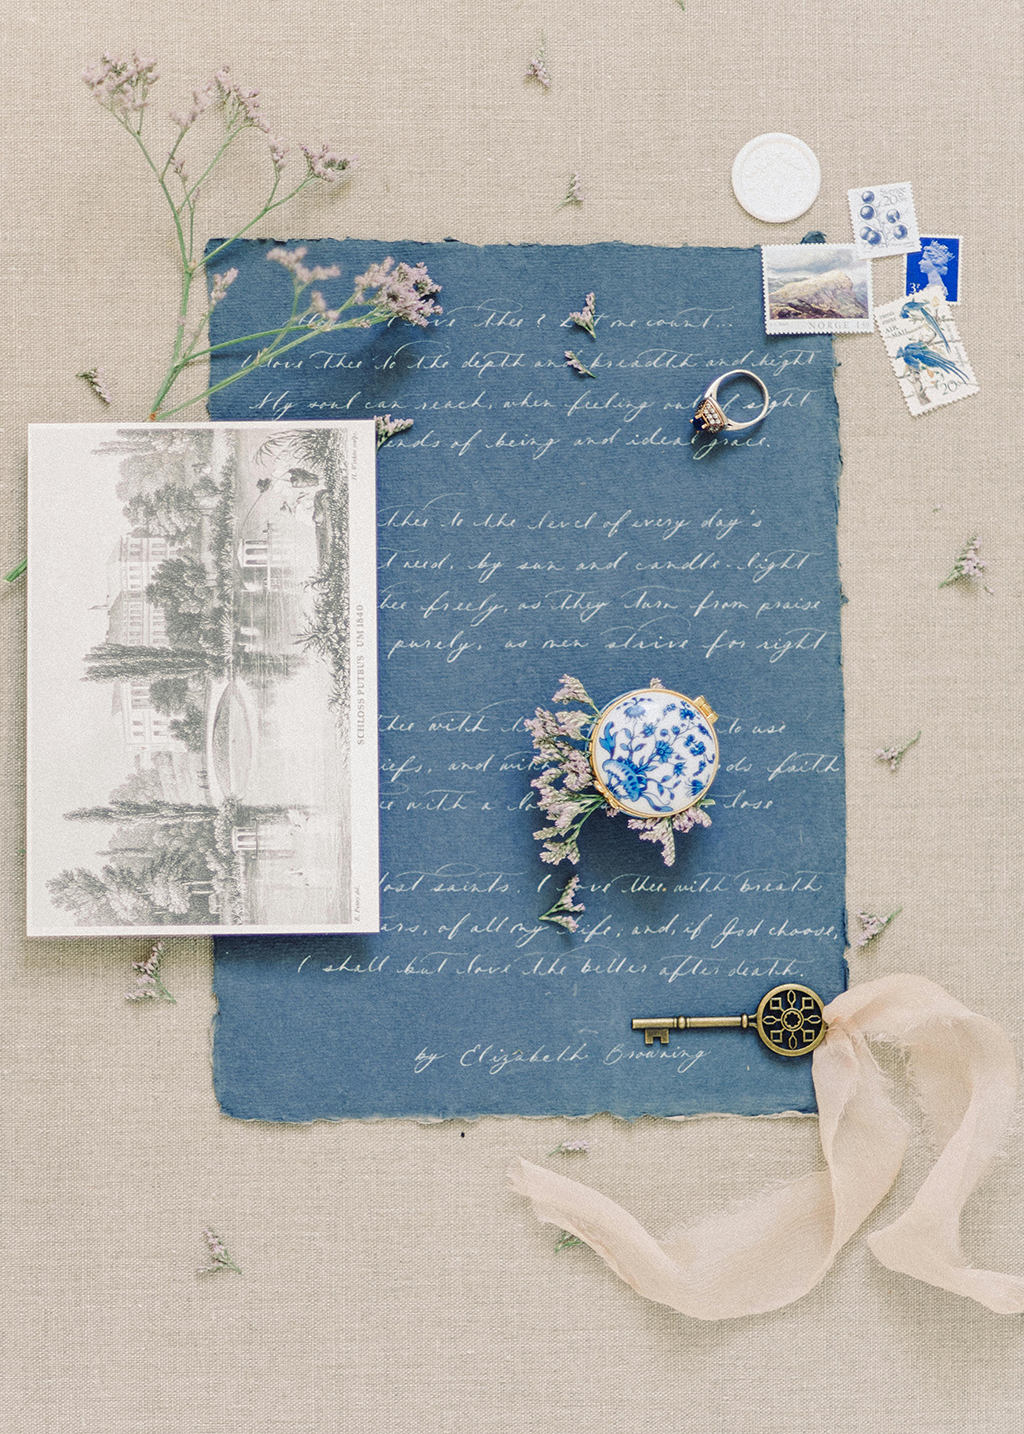 thee? Let me count...
love thee to the depth and breadth and hight
My soul can reach, when feeling out of sight
ends of being and ideal grace.
thee to the level of every day's
need, by sun and candle-light
freely, as they turn from praise
purely, as men strive for right
thee with to use
iefs, and with faith
with a lose
lost saints. I love thee with breath
of all my life, and, if God choose,
I shall but love the better after death.
by Elizabeth Browning
SCHLOSS PUTBUS UM 1840
Sverige
20
NORGE
AIR MAIL
20c